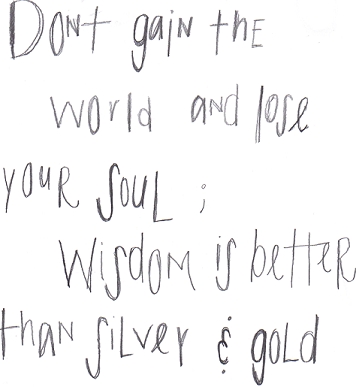 Dont gain the
world and lose
your soul ;
Wisdom is better
than silver & gold